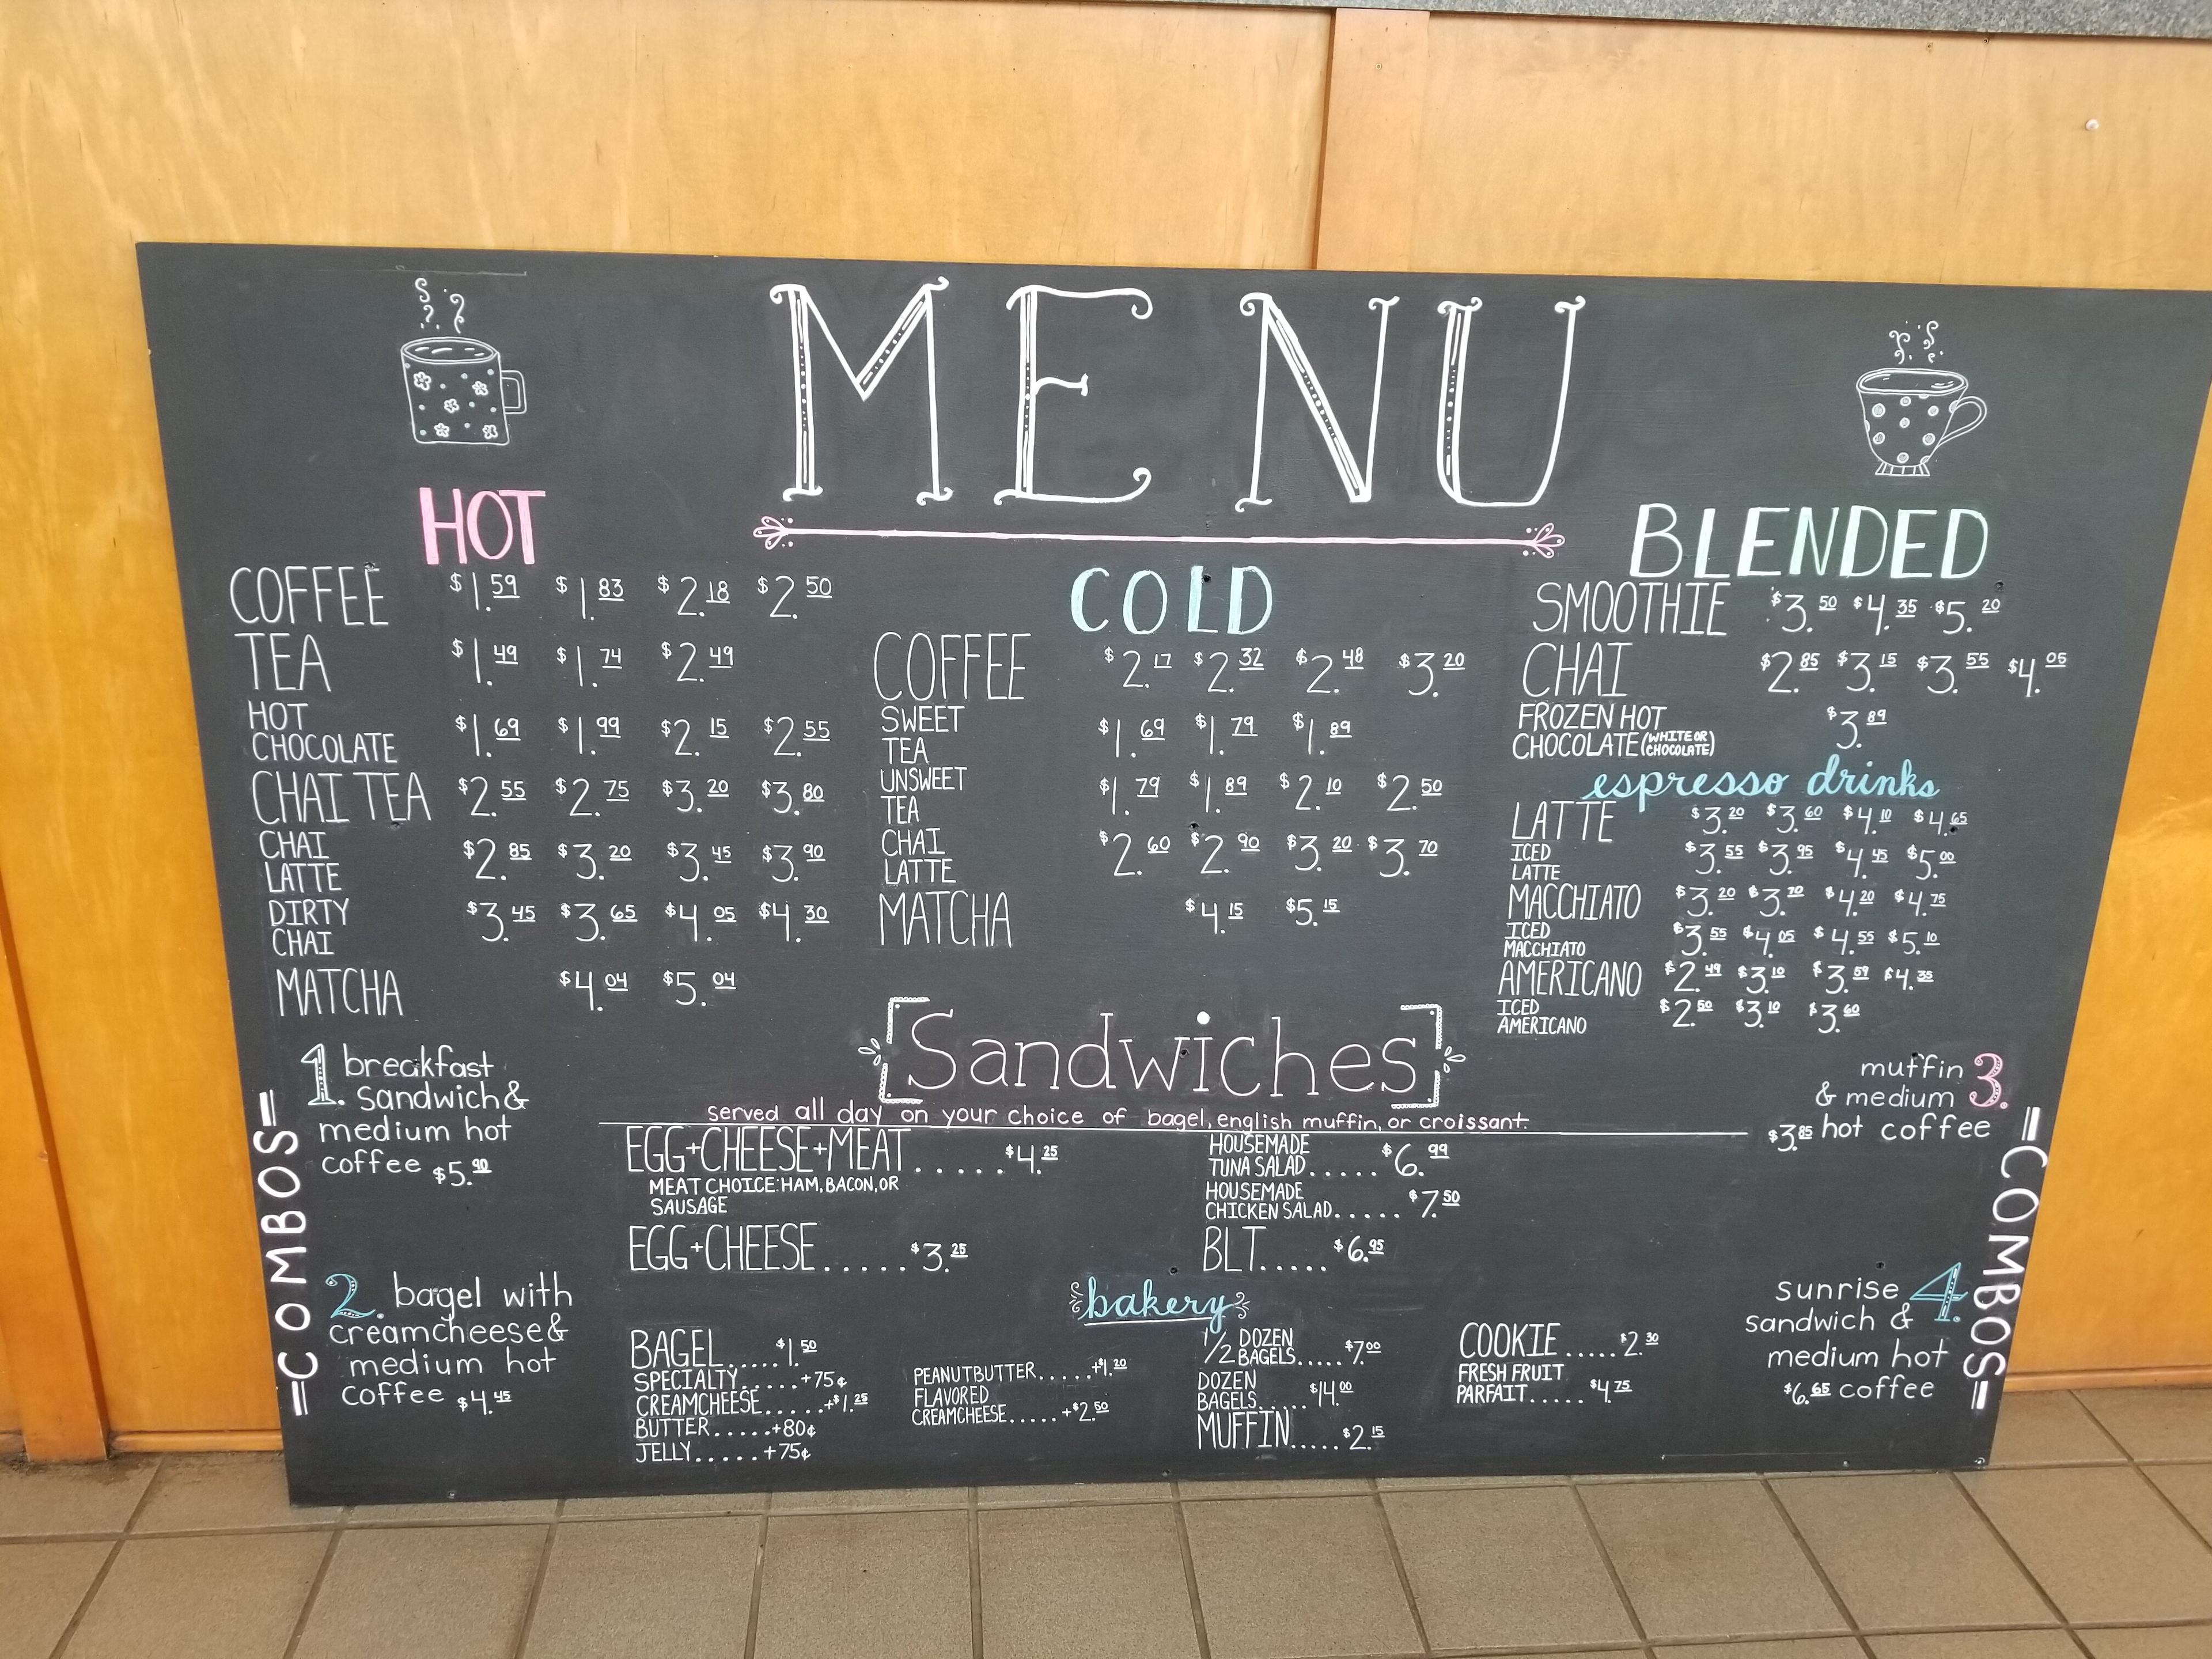 MENU
HOT
COFFEE $1.59 $1.83 $2.18 $2.50
TEA $1.49 $1.74 $2.49
HOT
CHOCOLATE $1.69 $1.99 $2.15 $2.55
CHAI TEA $2.55 $2.75 $3.20 $3.80
CHAI
LATTE $2.85 $3.20 $3.45 $3.90
DIRTY
CHAI $3.45 $3.65 $4.05 $4.30
MATCHA $4.04 $5.04
COLD
COFFEE $2.17 $2.32 $2.48 $3.20
SWEET
TEA $1.69 $1.79 $1.89
UNSWEET
TEA $1.79 $1.89 $2.10 $2.50
CHAI
LATTE $2.60 $2.90 $3.20 $3.70
MATCHA $4.15 $5.15
BLENDED
SMOOTHIE $3.50 $4.35 $5.20
CHAI $2.85 $3.15 $3.55 $4.05
FROZEN HOT
CHOCOLATE (WHITE OR CHOCOLATE) $3.89
espresso drinks
LATTE $3.20 $3.60 $4.10 $4.65
ICED
LATTE $3.55 $3.95 $4.45 $5.00
MACCHIATO $3.20 $3.70 $4.20 $4.75
ICED
MACCHIATO $3.55 $4.05 $4.55 $5.10
AMERICANO $2.49 $3.10 $3.59 $4.35
ICED
AMERICANO $2.50 $3.10 $3.60
=COMBOS=
1. breakfast
sandwich &
medium hot
coffee $5.90
2. bagel with
creamcheese &
medium hot
coffee $4.45
Sandwiches
served all day on your choice of bagel, english muffin, or croissant.
EGG+CHEESE+MEAT.....$4.25
MEAT CHOICE: HAM, BACON, OR
SAUSAGE
EGG+CHEESE.....$3.25
HOUSEMADE
TUNA SALAD.....$6.99
HOUSEMADE
CHICKEN SALAD.....$7.50
BLT.....$6.95
bakery
BAGEL.....$1.50
SPECIALTY.....+75¢
CREAMCHEESE.....+$1.25
BUTTER.....+80¢
JELLY.....+75¢
PEANUTBUTTER.....+$1.20
FLAVORED
CREAMCHEESE.....+$2.50
1/2 DOZEN
BAGELS.....$7.00
DOZEN
BAGELS.....$14.00
MUFFIN.....$2.15
COOKIE.....$2.30
FRESH FRUIT
PARFAIT.....$4.75
muffin 3.
& medium
$3.85 hot coffee
sunrise 4.
sandwich &
medium hot
$6.65 coffee
=COMBOS=